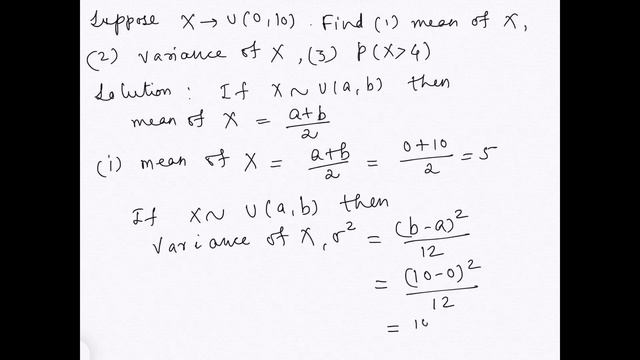 Suppose X → U(0,10). Find (1) mean of X,
(2) variance of X, (3) P(X>4)
Solution : If X ~ U(a,b) then
mean of X = a+b/2
(i) mean of X = a+b/2 = 0+10/2 = 5
If X ~ U(a,b) then
Variance of X, σ² = (b-a)²/12
= (10-0)²/12
=